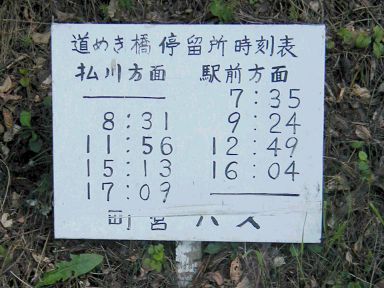 道めき橋 停留所 時刻表
払川方面 駅前方面
——— 7:35
8:31 9:24
11:56 12:49
15:13 16:04
17:09 ———
町営バス